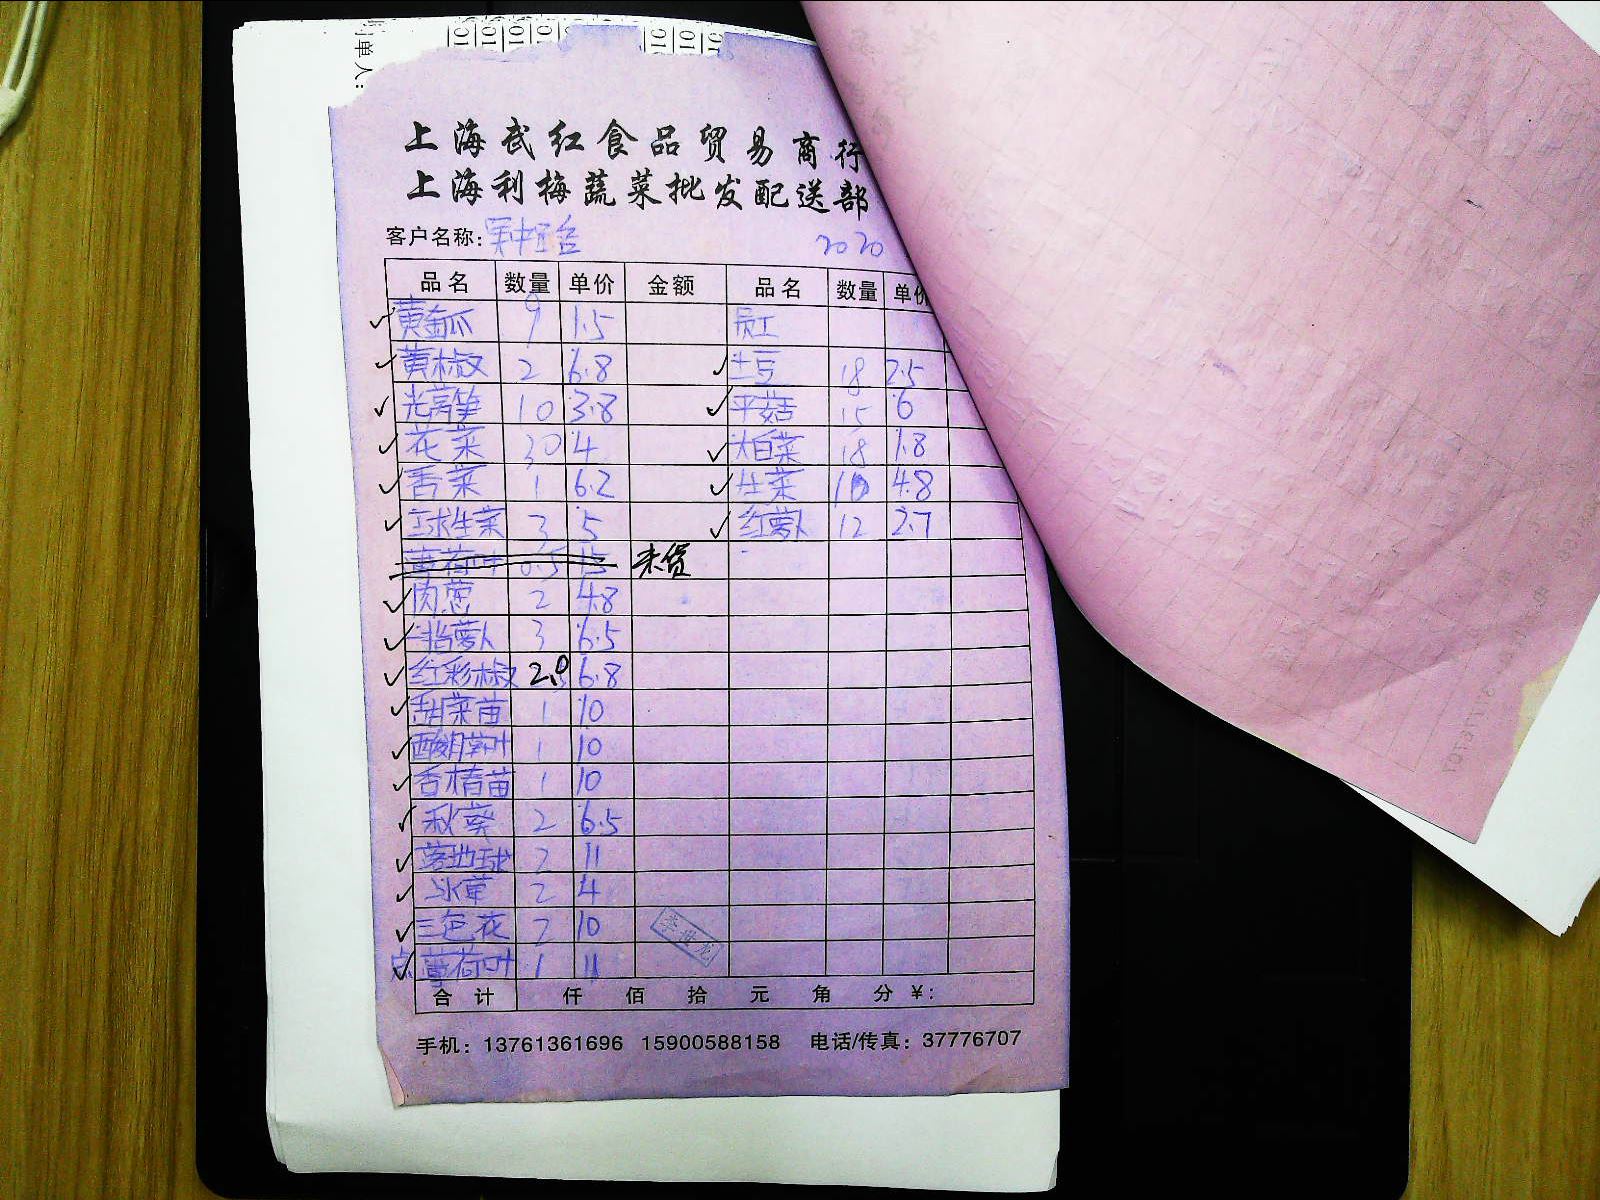 制单人:
上海武红食品贸易商行
上海利梅蔬菜批发配送部
客户名称:
2020
品名 数量 单价 金额 品名 数量 单价
黄金瓜 9 1.5 员工
黄椒 2 6.8 土豆 18 2.5
光莴笋 10 3.8 平菇 15 6
花菜 30 4 大白菜 18 1.8
香菜 1 6.2 生菜 10 4.8
球生菜 3 5 红萝卜 12 2.7
薄荷叶 0.5 15 未货
肉葱 2 4.8
手指萝卜 3 6.5
红彩椒 2.0 6.8
甜菜苗 1 10
酸膜叶 1 10
香椿苗 1 10
秋葵 2 6.5
落地球 2 11
冰草 2 4
三色花 2 10
点 薄荷叶 1 11
李世龙
合计 仟 佰 拾 元 角 分 ¥:
手机: 13761361696 15900588158 电话/传真: 37776707